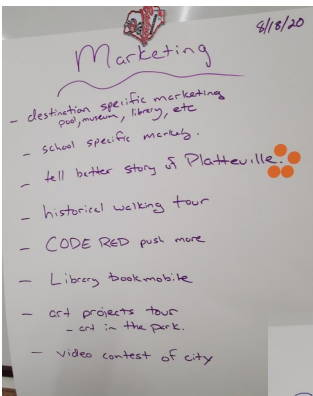 8/18/20
Marketing
- destination specific marketing
pool, museum, library, etc
- school specific marketg.
- tell better story of Platteville.
- historical walking tour
- CODE RED push more
- Library bookmobile
- art projects tour
- art in the park.
- video contest of city